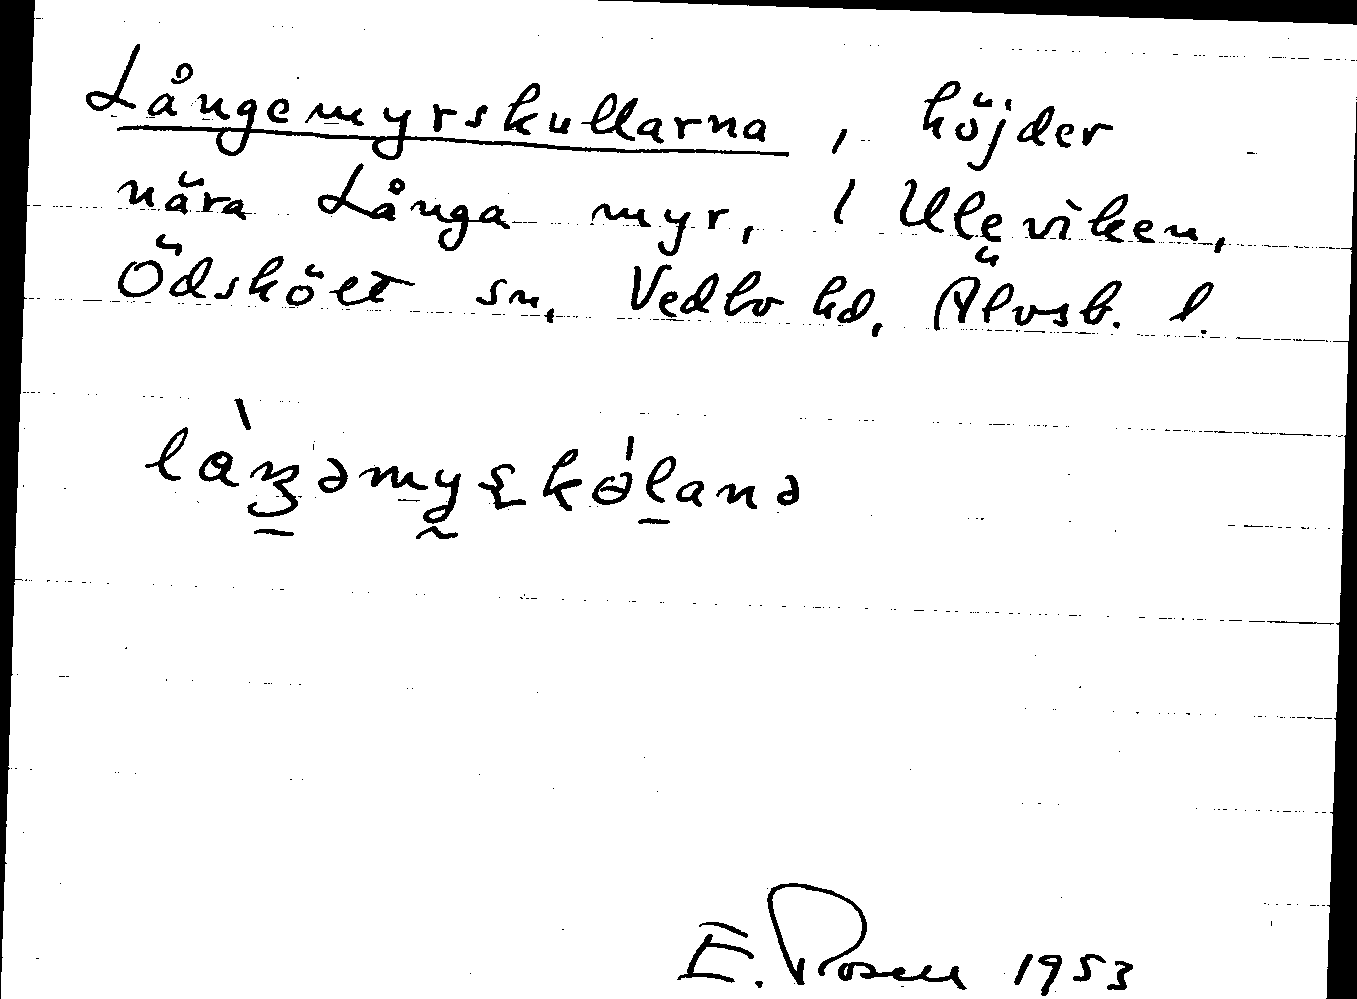 Långemyrskullarna, höjder
nära Långa myr, l Uleviken,
Ödskölt sn, Vedbo hd, Älvsb. l.
E. Rosell 1953